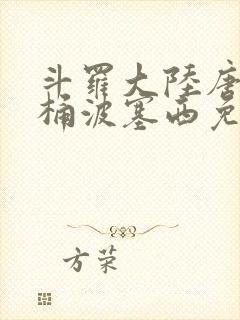 斗羅大陸唐
桶波塞西免
方荣